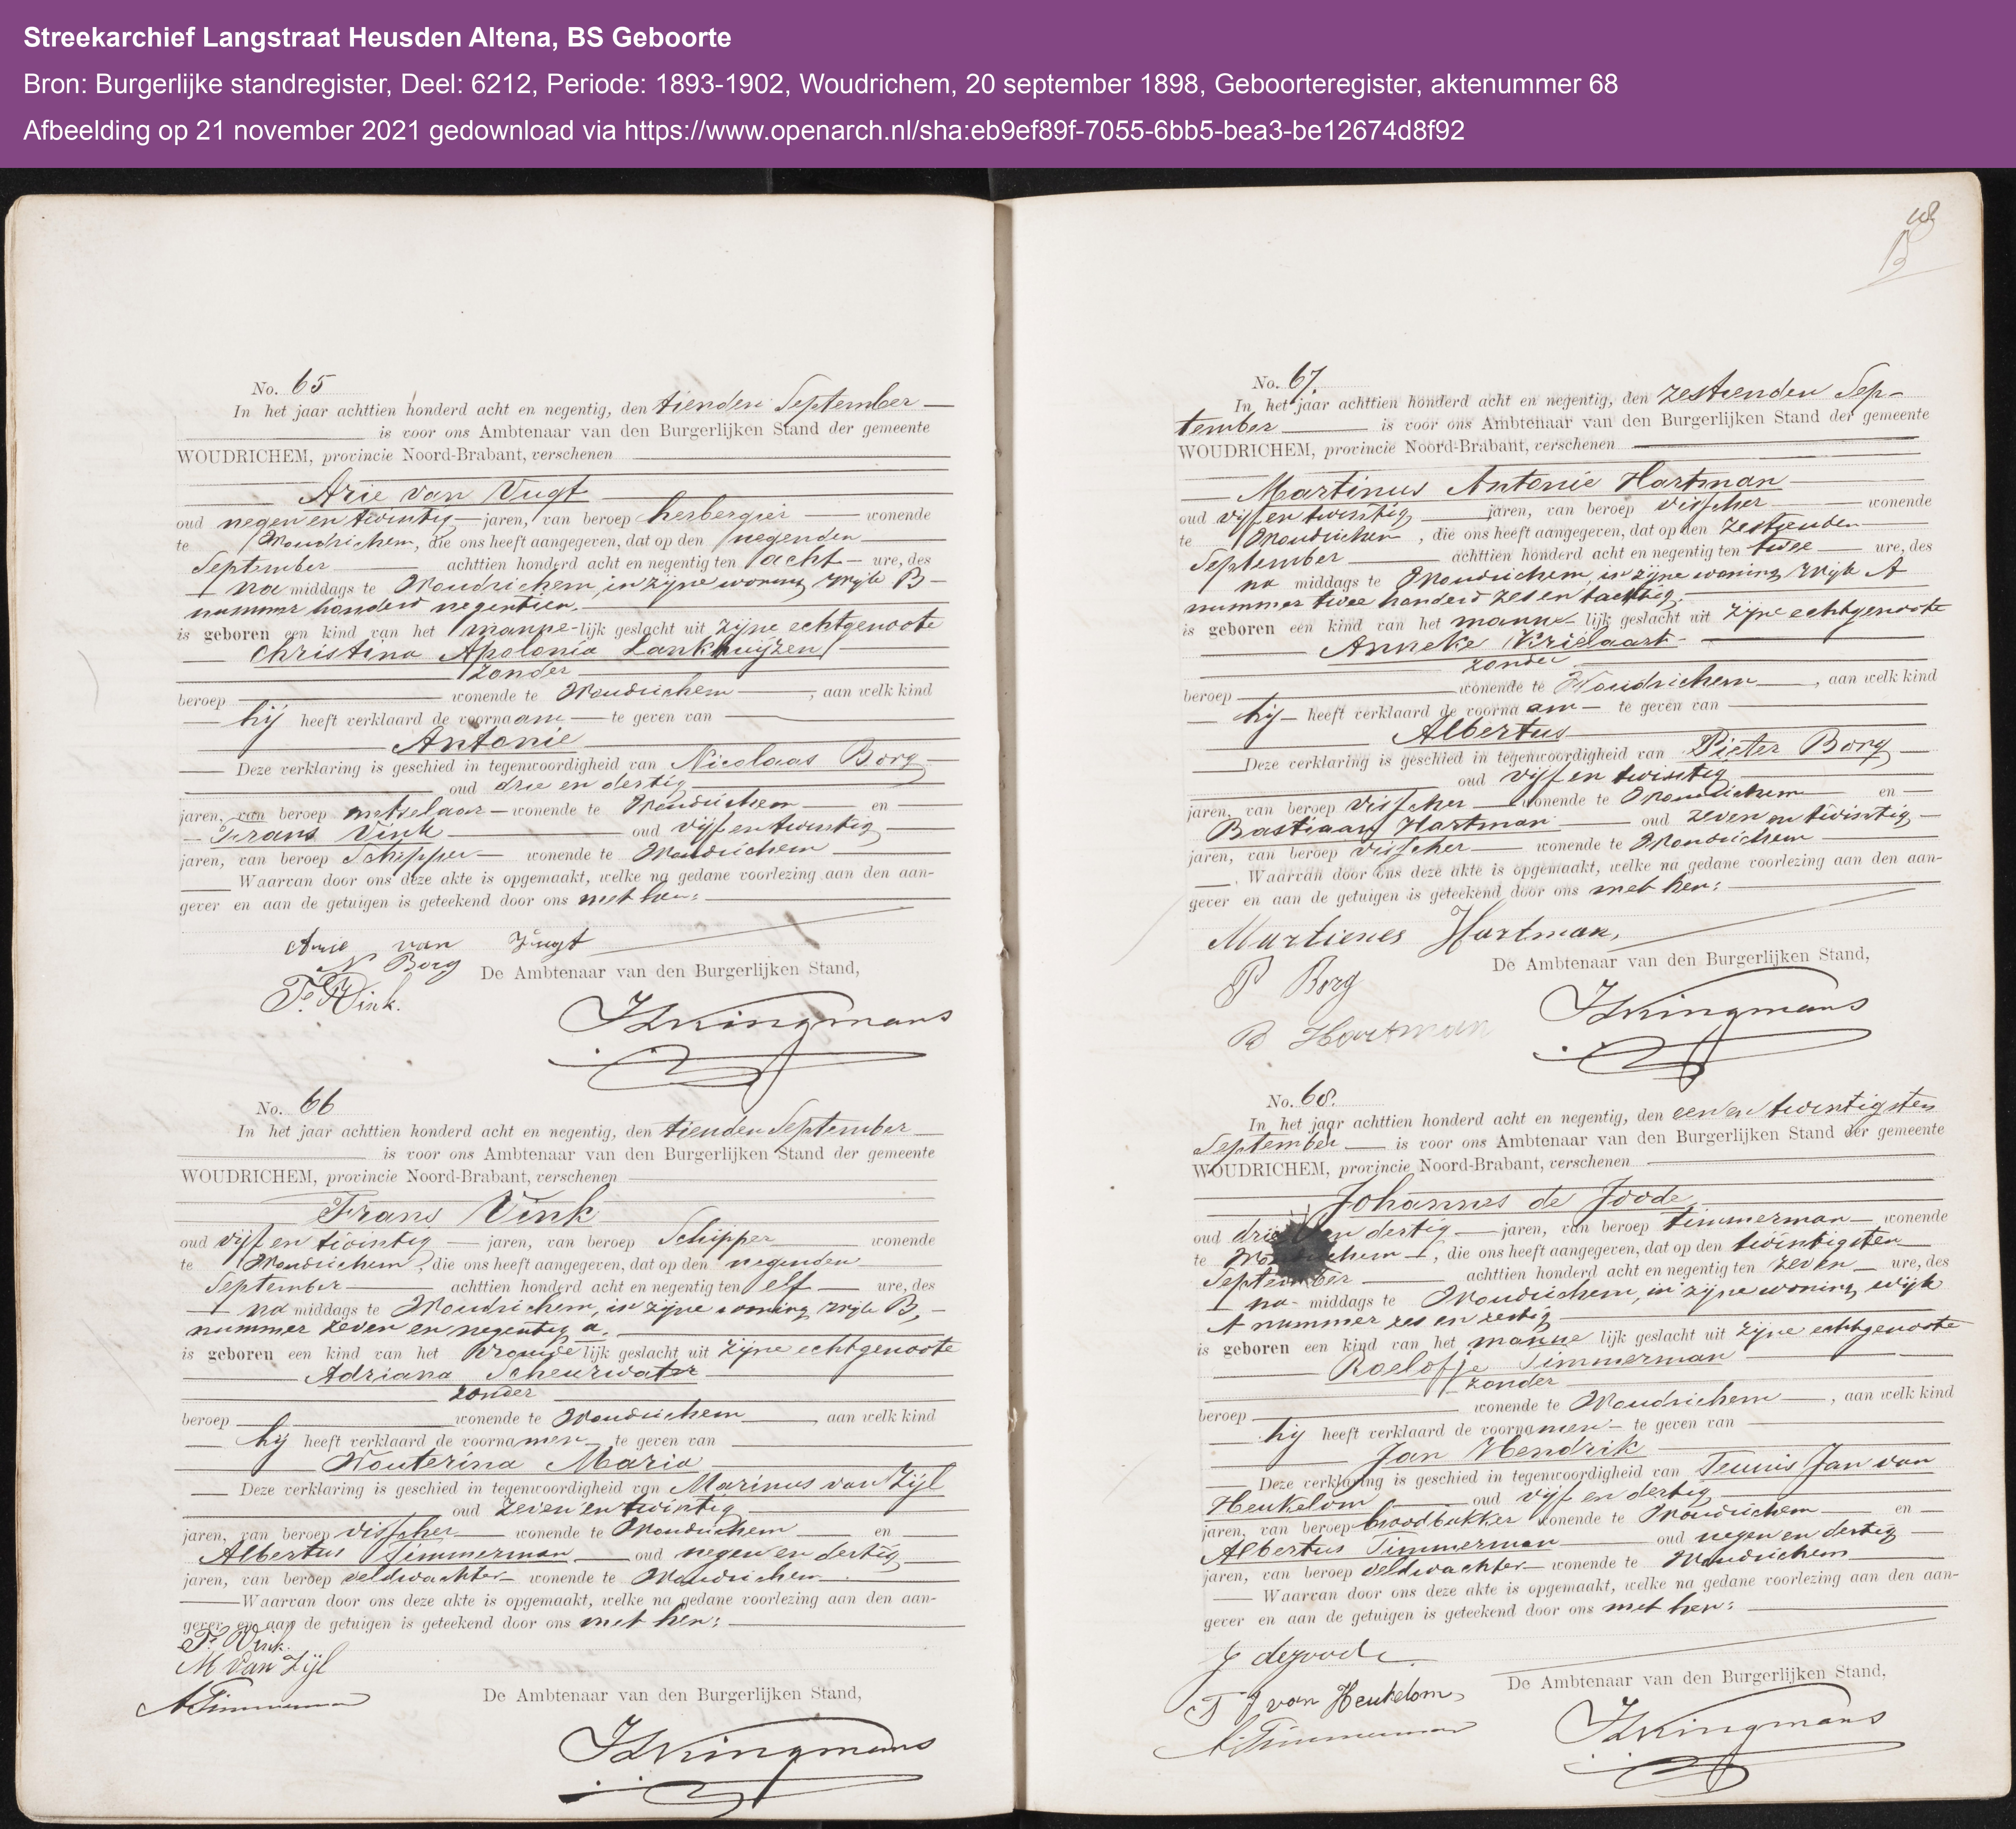 Streekarchief Langstraat Heusden Altena, BS Geboorte
Bron: Burgerlijke standregister, Deel: 6212, Periode: 1893-1902, Woudrichem, 20 september 1898, Geboorteregister, aktenummer 68
Afbeelding op 21 november 2021 gedownload via https://www.openarch.nl/sha:eb9ef89f-7055-6bb5-bea3-be12674d8f92
No. 65
In het jaar achttien honderd acht en negentig, den tienden September
is voor ons Ambtenaar van den Burgerlijken Stand der gemeente
WOUDRICHEM, provincie Noord-Brabant, verschenen
Arie van Vugt
oud negen en twintig jaren, van beroep herbergier wonende
te Woudrichem, die ons heeft aangegeven, dat op den negenden
September achttien honderd acht en negentig ten acht ure, des
na middags te Woudrichem, in zijne woning wijk B
nummer honderd negentien.
is geboren een kind van het manne-lijk geslacht uit zijne echtgenoote
Christina Apolonia Lankhuijzen
zonder
beroep wonende te Woudrichem, aan welk kind
hij heeft verklaard de voornaam te geven van
Antonie
Deze verklaring is geschied in tegenwoordigheid van Nicolaas Borg
oud drie en dertig
jaren, van beroep metselaar wonende te Woudrichem en
Frans Vink oud vijf en twintig
jaren, van beroep Schipper wonende te Woudrichem
Waarvan door ons deze akte is opgemaakt, welke na gedane voorlezing aan den aan-
gever en aan de getuigen is geteekend door ons met hen:
Arie van Vugt
N Borg
De Ambtenaar van den Burgerlijken Stand,
F. Vink.
Kingmans
No. 66
In het jaar achttien honderd acht en negentig, den tienden September
is voor ons Ambtenaar van den Burgerlijken Stand der gemeente
WOUDRICHEM, provincie Noord-Brabant, verschenen
Frans Vink
oud vijf en twintig jaren, van beroep Schipper wonende
te Woudrichem, die ons heeft aangegeven, dat op den negenden
September achttien honderd acht en negentig ten elf ure, des
na middags te Woudrichem, in zijne woning wijk B,
nummer zeven en negentig a.
is geboren een kind van het vrouwelijk geslacht uit zijne echtgenoote
Adriana Scheurwater
zonder
beroep wonende te Woudrichem, aan welk kind
hij heeft verklaard de voornamen te geven van
Wouterina Maria
Deze verklaring is geschied in tegenwoordigheid van Marinus van Zijl
oud zeven en twintig
jaren, van beroep visscher wonende te Woudrichem en
Albertus Timmerman oud negen en dertig
jaren, van beroep veldwachter wonende te Woudrichem
Waarvan door ons deze akte is opgemaakt, welke na gedane voorlezing aan den aan-
gever en aan de getuigen is geteekend door ons met hen:
F. Vink.
M van Zijl
A Timmerman
De Ambtenaar van den Burgerlijken Stand,
Kingmans
No. 67.
In het jaar achttien honderd acht en negentig, den zestienden Sep-
tember is voor ons Ambtenaar van den Burgerlijken Stand der gemeente
WOUDRICHEM, provincie Noord-Brabant, verschenen
Martinus Antonie Hartman
oud vijf en twintig jaren, van beroep visscher wonende
te Woudrichem, die ons heeft aangegeven, dat op den zestienden
September achttien honderd acht en negentig ten twee ure, des
na middags te Woudrichem, in zijne woning wijk A
nummer twee honderd zes en tachtig.
is geboren een kind van het manne lijk geslacht uit zijne echtgenoote
Anneke Krielaart
zonder
beroep wonende te Woudrichem, aan welk kind
hij heeft verklaard de voornaam te geven van
Albertus
Deze verklaring is geschied in tegenwoordigheid van Pieter Borg
oud vijf en twintig
jaren, van beroep visscher wonende te Woudrichem en
Bastiaan Hartman oud zeven en twintig
jaren, van beroep visscher wonende te Woudrichem
Waarvan door ons deze akte is opgemaakt, welke na gedane voorlezing aan den aan-
gever en aan de getuigen is geteekend door ons met hen:
Martienes Hartman,
De Ambtenaar van den Burgerlijken Stand,
P Borg
Kingmans
B Hartman
No. 68.
In het jaar achttien honderd acht en negentig, den een en twintigsten
September is voor ons Ambtenaar van den Burgerlijken Stand der gemeente
WOUDRICHEM, provincie Noord-Brabant, verschenen
Johannes de Joode,
oud drie en dertig jaren, van beroep timmerman wonende
te Woudrichem, die ons heeft aangegeven, dat op den twintigsten
September achttien honderd acht en negentig ten zeven ure, des
na middags te Woudrichem, in zijne woning wijk
A nummer zes en zestig
is geboren een kind van het manne lijk geslacht uit zijne echtgenoote
Roelofje Timmerman
zonder
beroep wonende te Woudrichem, aan welk kind
hij heeft verklaard de voornamen te geven van
Jan Hendrik
Deze verklaring is geschied in tegenwoordigheid van Teunis Jan van
Heukelom oud vijf en dertig
jaren, van beroep broodbakker wonende te Woudrichem en
Albertus Timmerman oud negen en dertig
jaren, van beroep veldwachter wonende te Woudrichem
Waarvan door ons deze akte is opgemaakt, welke na gedane voorlezing aan den aan-
gever en aan de getuigen is geteekend door ons met hen:
J dejoode.
De Ambtenaar van den Burgerlijken Stand,
T J van Heukelom
A Timmerman
Kingmans